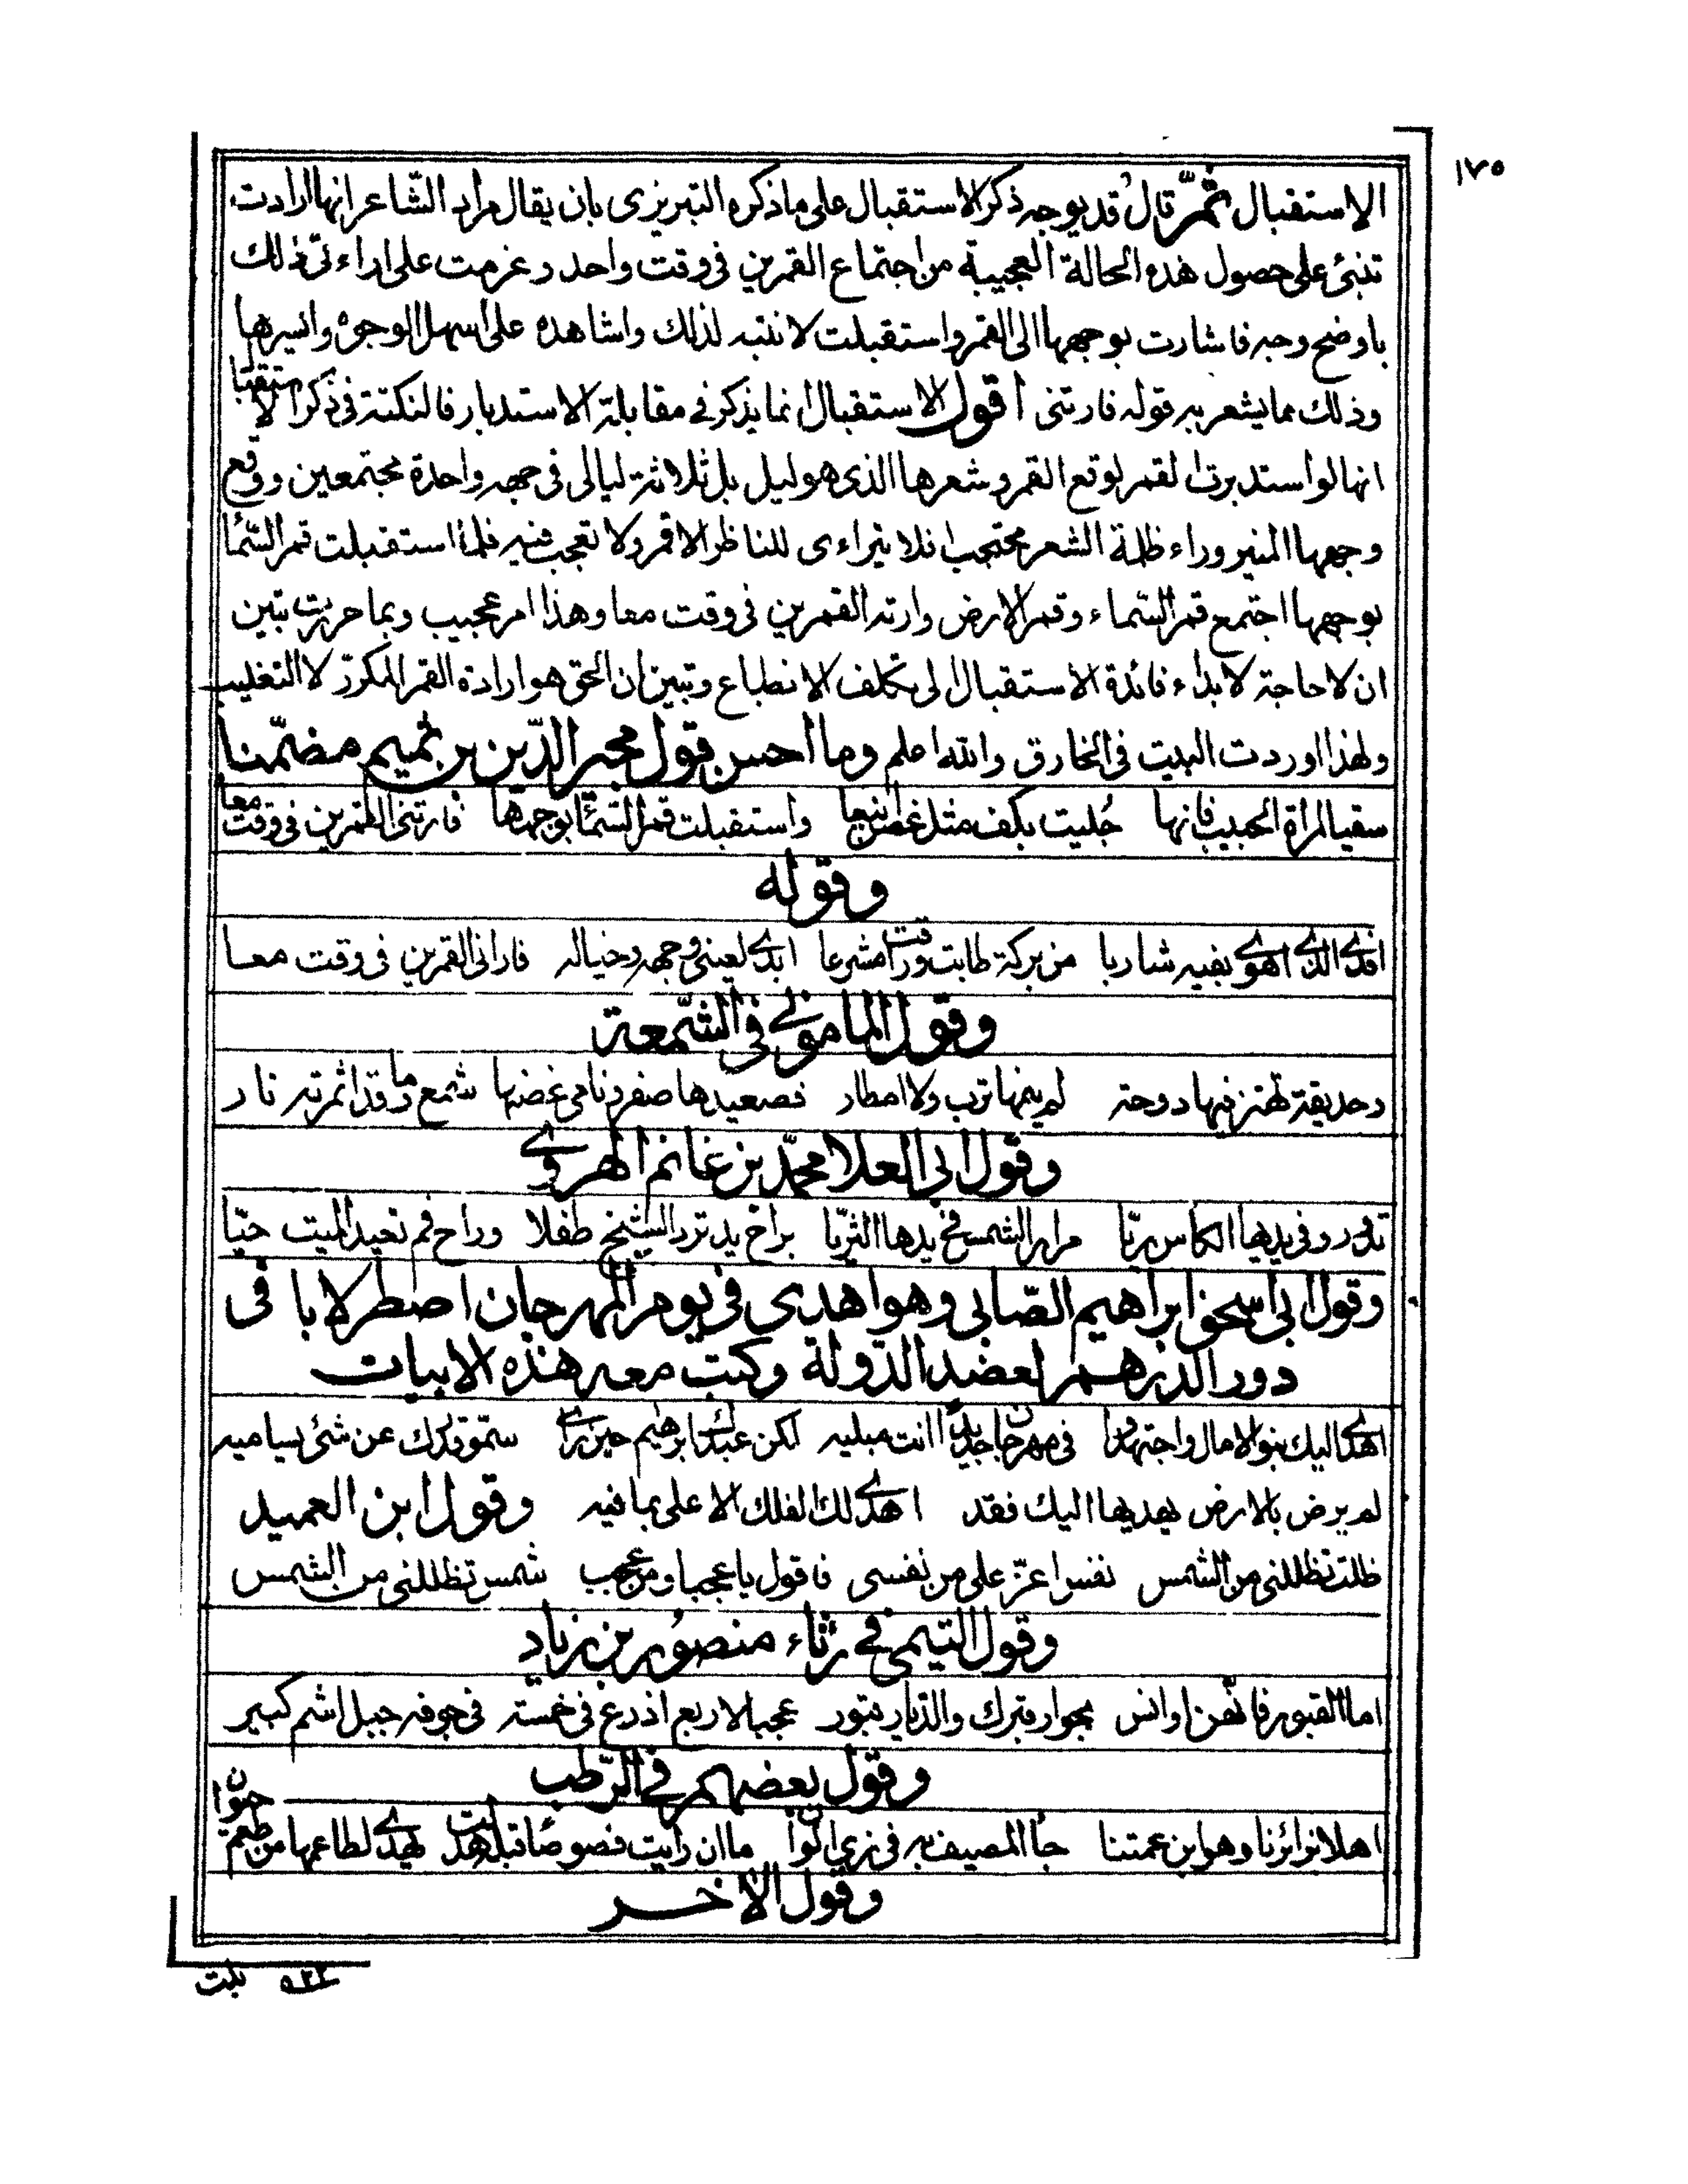 ١٧٥
الاستقبال ثمّ قال قد يوجه ذكر الاستقبال على ما ذكره التبريزى بان يقال مراد الشّاعر انها ارادت
تنبئ على حصول هذه الحالة العجيبة من اجتماع القمرين فى وقت واحد و عزمت على اراءتى ذلك
باوضح وجه فاشارت بوجهها الى القمر واستقبلت لانتبه لذلك واشاهده على اسهل الوجوه وايسرها
وذلك مما يشعر به قوله فارتنى اقول الاستقبال انما يذكر فى مقابلة الاستدبار فالنكتة فى ذكر الاستقبا
انها لو استدبرت القمر لوقع القمر وشعرها الذى هو ليل بل ثلاثة ليالى فى جهه واحدة مجتمعين ووقع
وجهها المنير وراء ظلمة الشعر محتجبا فلا يتراءى للناظر الا قمر ولا تعجب فيه فلما استقبلت قمر السّما
بوجهها اجتمع قمر السّماء وقمر الارض وارته القمرين فى وقت معا وهذا امر عجيب وبما حررت تبين
ان لا حاجة لابداء فائدة الاستقبال الى تكلف الانطباع وتبين ان الحق هو ارادة القمر المكرّر لا التغليب
ولهذا اوردت البيت فى الخارق والله اعلم وما احسن قول مجير الدّين بن تميم مضمّنا
سقيا لمراة الحبيب فانها جُليت بكف مثل غصن اينعا واستقبلت قمر السّما بوجهها فارتنى القمرين فى وقت معا
وقوله
افدى الذى اهوى بفيه شاربا من بركة طابت وراقت مشرعا ابدى لعينى وجهه وخياله فارانى القمرين فى وقت معا
وقول المامونى فى الشّمعة
وحديقة تهتز فيها دوحة لم ينمها ترب ولا امطار فصعيدها صفر ونامى غصنها شمع وما قد اثمرته نار
وقول ابى العلا محمّد بن غانم الهروى
تدور وفى يديها الكاس ريّا مرار الشمس فى يدها الثريّا براح يد ترد الشيخ طفلا وراح فم تعيد الميت حيّا
وقول ابى اسحق ابراهيم الصّابى وهو اهدى فى يوم المهرجان اصطرلابا فى
دور الدرهم لعضد الدّولة وكتب معه هذه الابيات
اهدى اليك بنو الامال واجتهدوا فى مهرجان جديد انت مبليه لكن عبدك ابرهيم حين راى سمّو قدرك عن شئ يساميه
لم يرض بالارض يهديها اليك فقد اهدى لك الفلك الاعلى بما فيه وقول ابن العميد
ظلت تظللنى من الشمس نفس اعزّ على من نفسى فاقول يا عجبا ومن عجب شمس تظللنى من الشمس
وقول التيمى فى رثاء منصور بن زياد
اما القبور فانّهن اوانس بجوار قبرك والدّيار قبور عجبا لاربع اذرع فى خمسة فى جوفه جبل اشم كبير
وقول بعضهم فى الرّطب
اهلا بزائرنا وهو ابن عمتنا جا المصيف به فى زى الوان ما ان رايت فصوصا قبلها اهديت تهدى لطاعمها من طعم حلوان
وقول الاخر